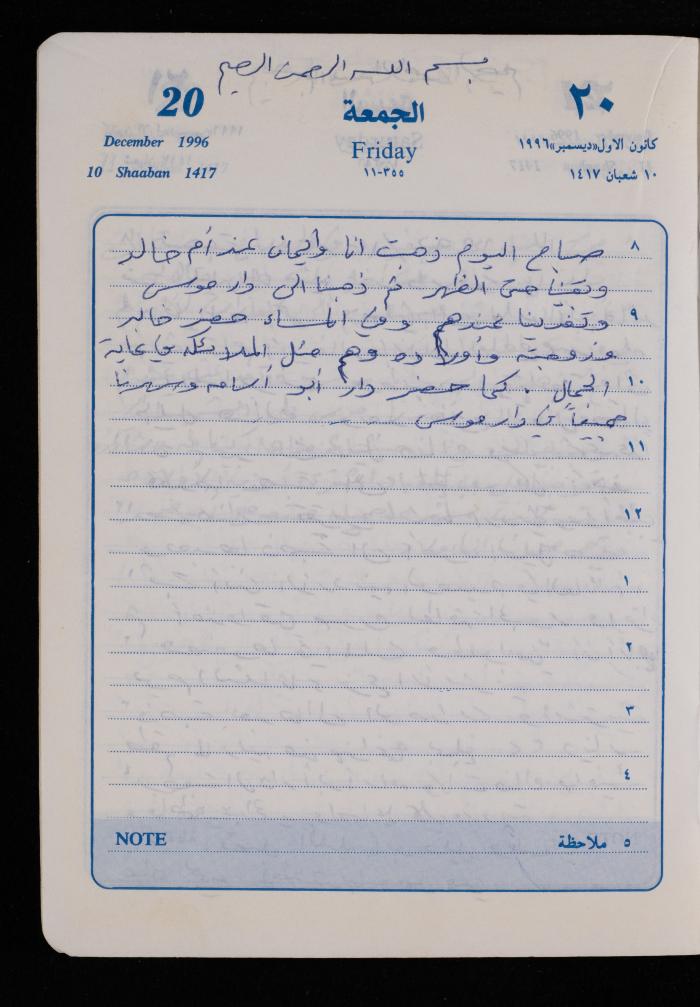 بسم الله الرحمن الرحيم
20 الجمعة ٢٠
December 1996 Friday كانون الاول «ديسمبر» ١٩٩٦
10 Shaaban 1417 ١١-٣٥٥ ١٠ شعبان ١٤١٧
٨ صباح اليوم ذهبت انا وايمان عند أم خالد
وبقينا حتى الظهر ثم ذهبنا الى دار موسى
٩ وتغدينا عندهم وفي المساء حضر خالد
وزوجته وأولاده وهم مثل الملائكة في غاية
١٠ الجمال . كما حضر دار أبو أسامه وسهرنا
جميعاً في دار موسى
١١
١٢
١
٢
٣
٤
NOTE ٥ ملاحظة